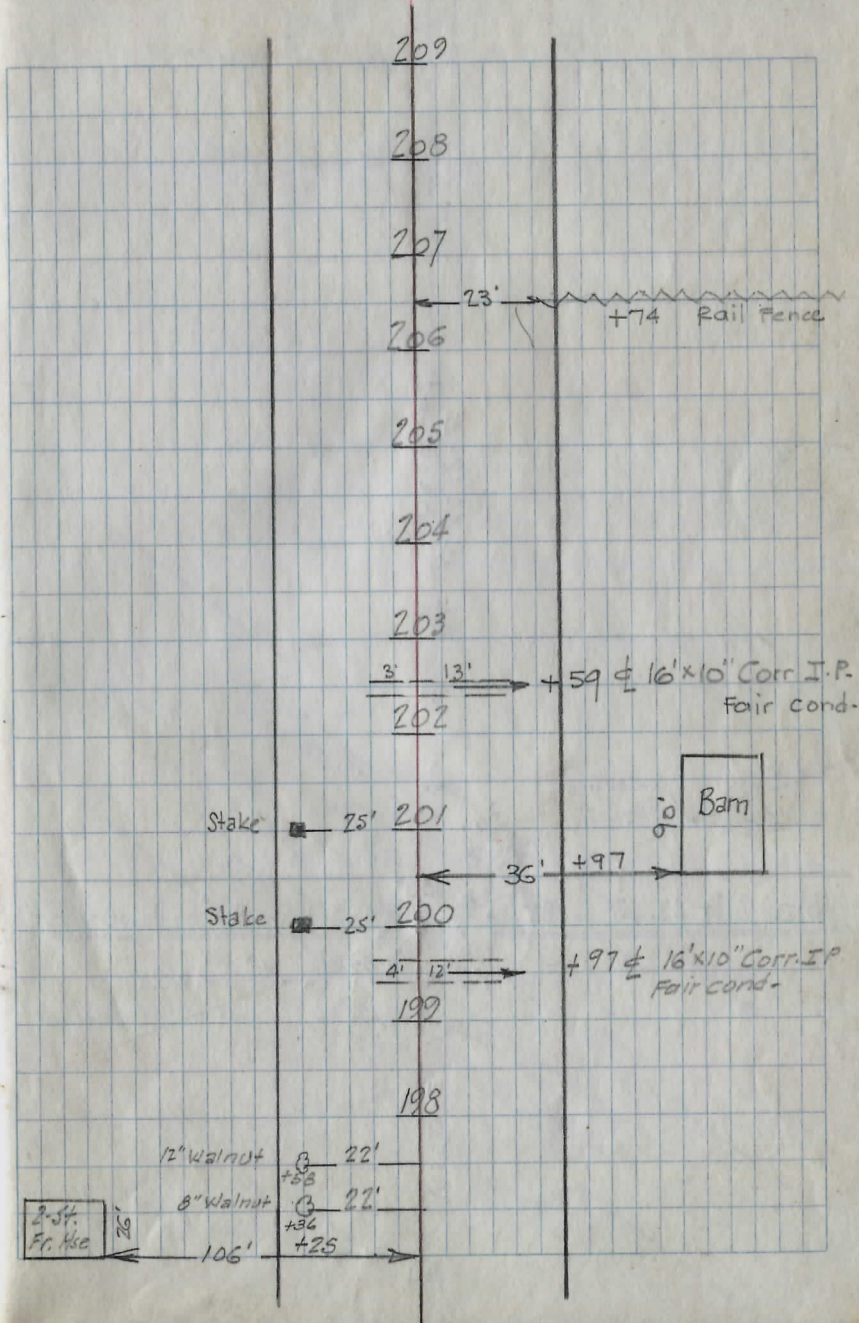 209
208
207
23'
+74 Rail Fence
206
205
204
203
3' 13' +59 ℄ 16'x10" Corr I.P.
Fair cond-
202
Barn
90'
Stake 25' 201
36' +97
Stake 25' 200
4' 12' +97 ℄ 16'x10" Corr. I P
Fair cond-
199
198
12" Walnut 22'
+58
8" Walnut 22'
+36
2-St.
Fr. Hse
26'
106' +25